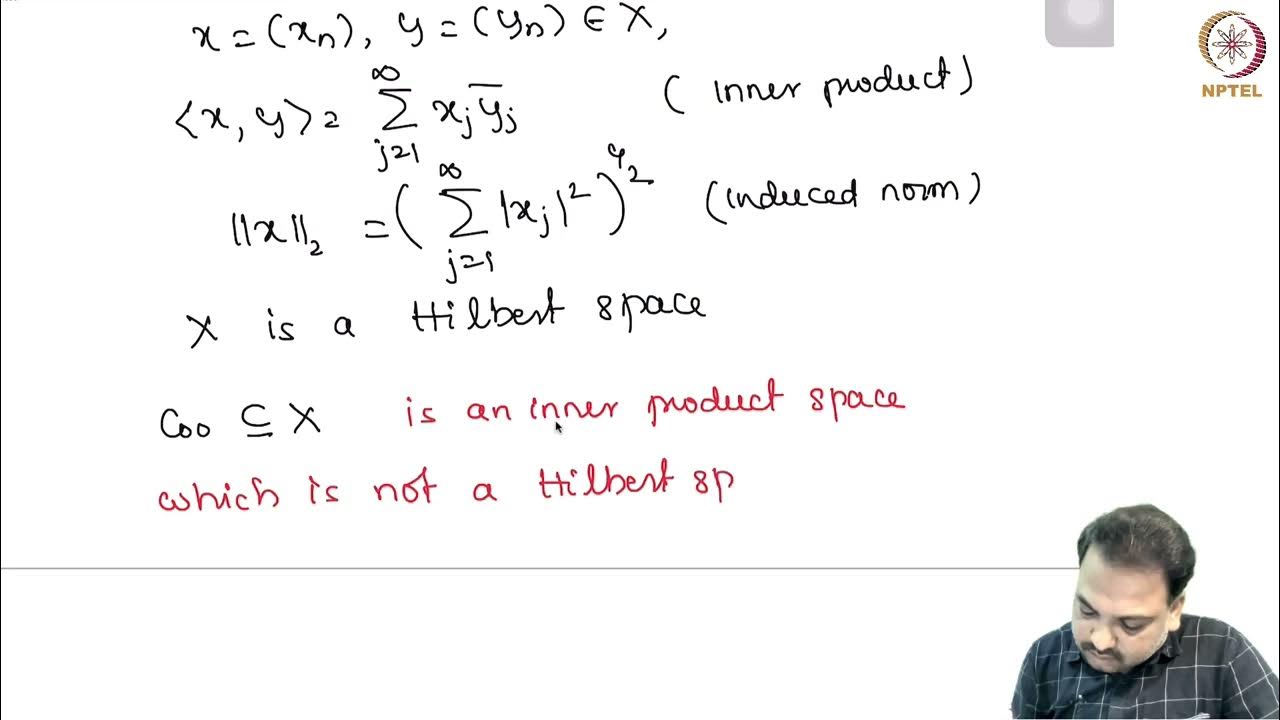 x = (xₙ), y = (yₙ) ∈ X,
⟨x, y⟩ = ∑_{j=1}^{∞} x_j ȳ_j (inner product)
‖x‖₂ = (∑_{j=1}^{∞} |x_j|²)^{1/2} (induced norm)
X is a Hilbert space
C₀₀ ⊆ X is an inner product space
which is not a Hilbert sp
NPTEL